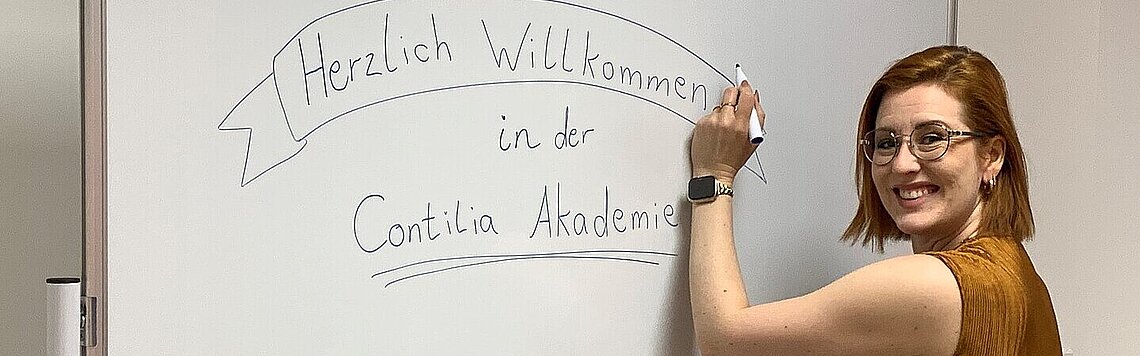 Herzlich Willkommen
in der
Contilia Akademie